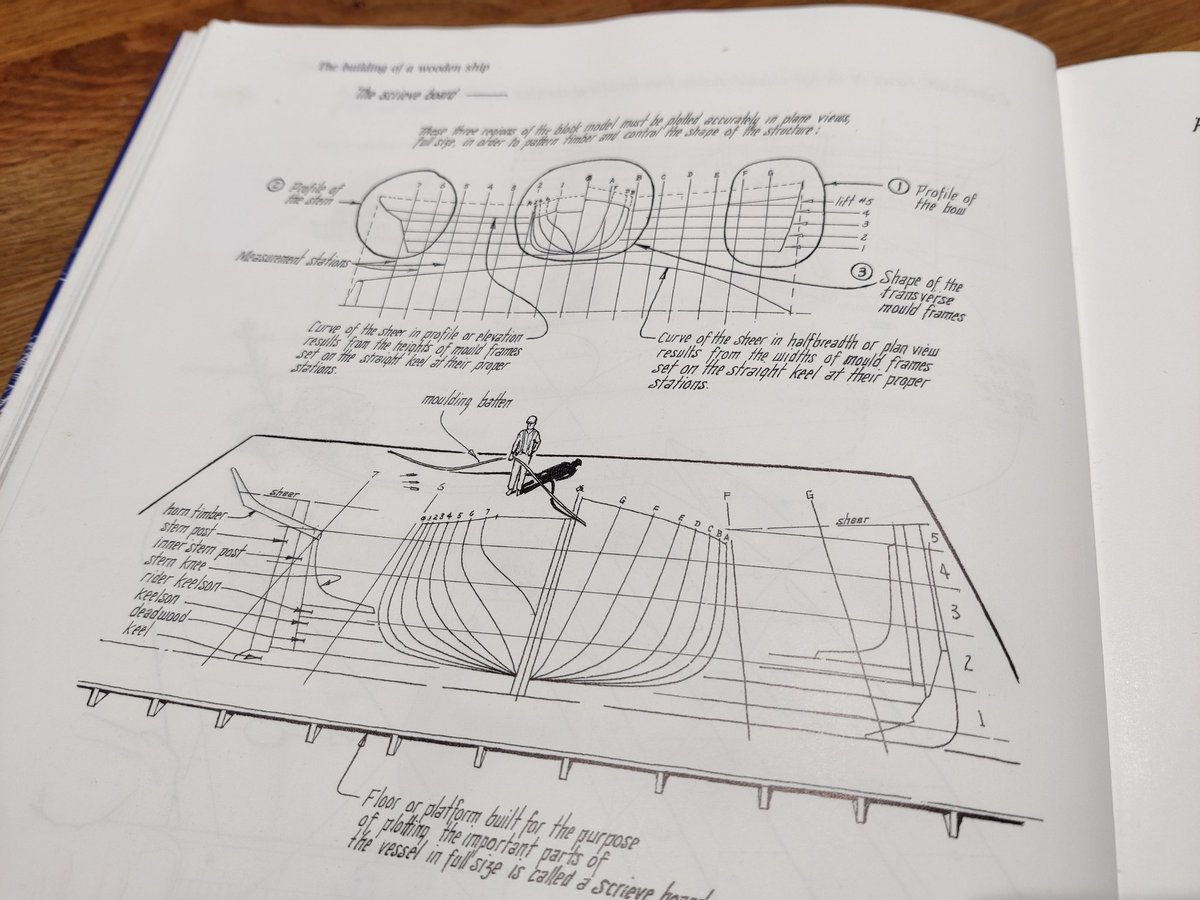 The building of a wooden ship
The scrieve board
These three regions of the block model must be plotted accurately in plane views,
full size, in order to pattern timber and control the shape of the structure:
② Profile of
the stern
7 6 5 4 3 2 1 A B C D E F G
① Profile of
the bow
lift #5
4
3
2
1
Measurement stations
③ Shape of the
transverse
mould frames
Curve of the sheer in profile or elevation
results from the heights of mould frames
set on the straight keel at their proper
stations.
Curve of the sheer in halfbreadth or plan view
results from the widths of mould frames
set on the straight keel at their proper
stations.
moulding batten
7
sheer
horn timber
stern post
inner stern post
stern knee
rider keelson
keelson
deadwood
keel
1 2 3 4 5 6 7
G F E D C B A
F
G
sheer
5
4
3
2
1
Floor or platform built for the purpose
of plotting the important parts of
the vessel in full size is called a scrieve board